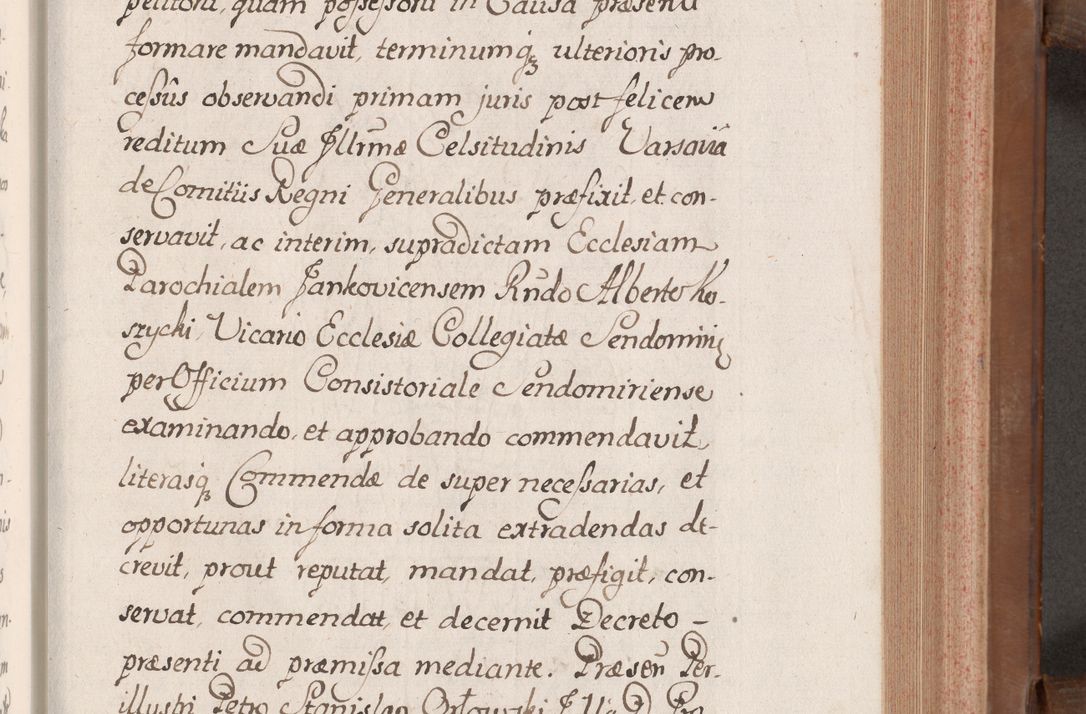 petitori, quam possessori in Causa præsenti
formare mandavit, terminumq́ꝫ ulterioris pro-
cessûs observandi primam juris post felicem
reditum Suæ Jllrmæ Celsitudinis Varsaviâ
de Comitiis Regni Generalibus præfixit, et con-
servavit, ac interim, supradictam Ecclesiam
Parochialem Jankovicensem Rńdo Alberto Ko-
szycki, Vicario Ecclesiæ Collegiatæ Sendomiriẽ
per Officium Consistoriale Sendomiriense
examinando, et approbando commendavit,
literasq́ꝫ Commendæ de super necessarias, et
opportunas in forma solita extradendas de-
crevit, prout reputat, mandat, præfigit, con-
servat, commendat, et decernit Decreto –
præsenti ad præmissa mediante. Præseñ Per-
illustri Petro Stanislao Orłowski J. U. D. Pro